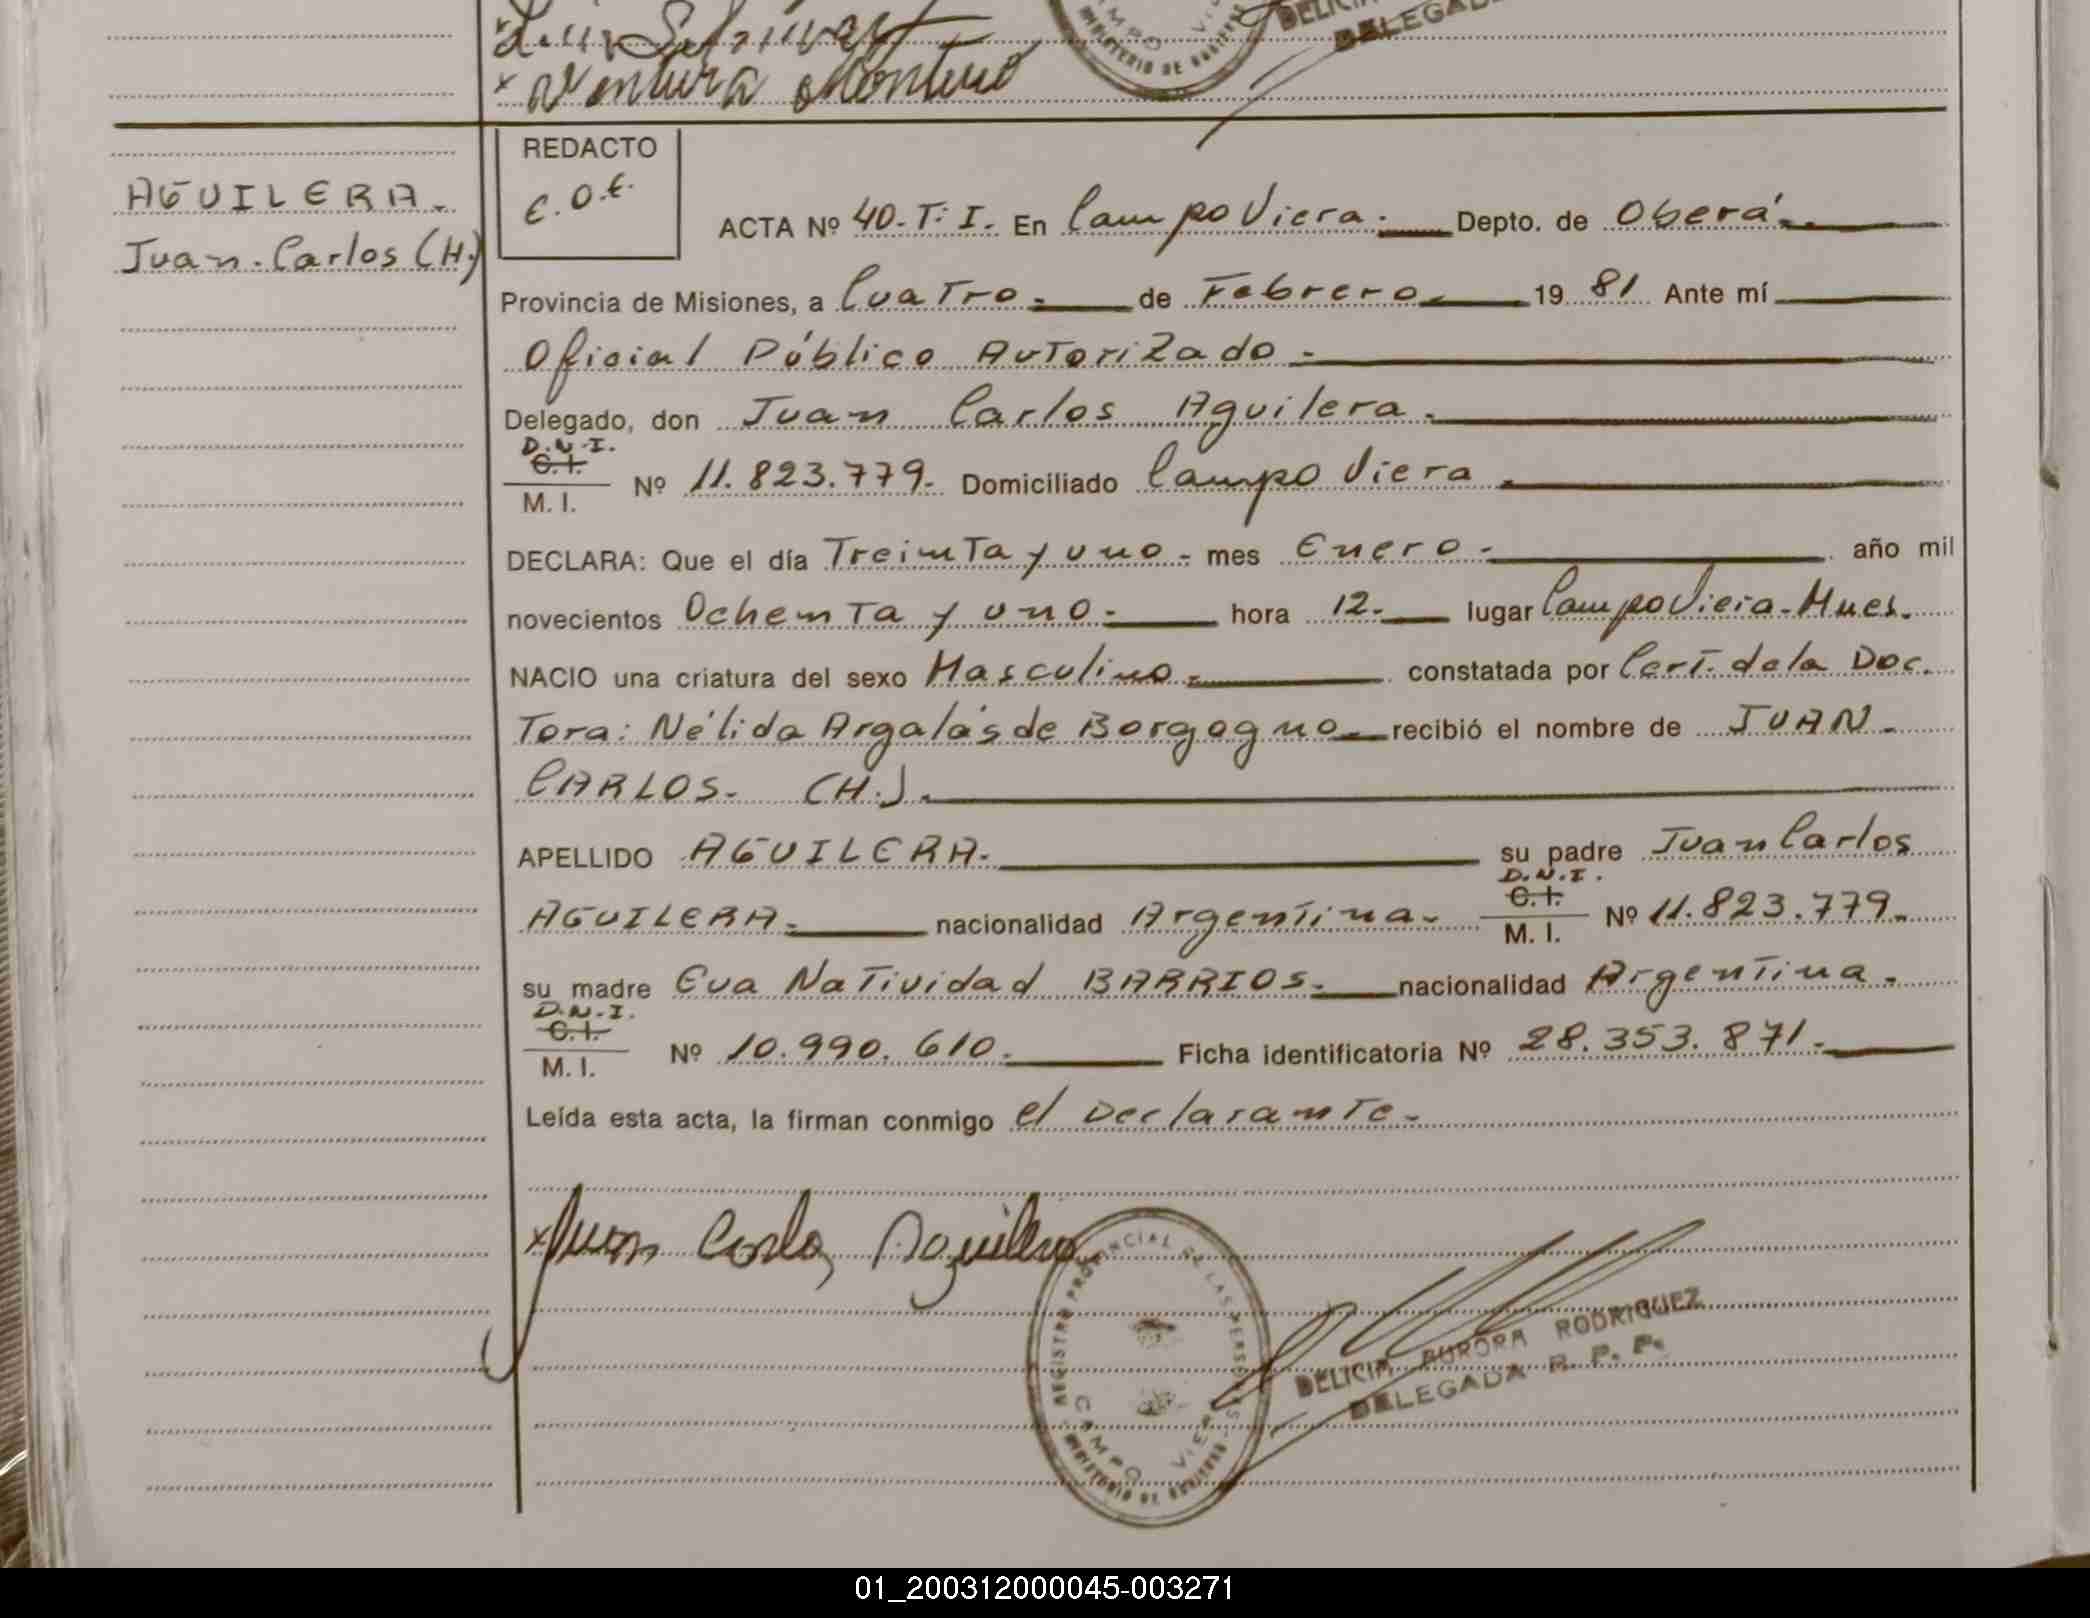 DELEGADA
MINISTERIO DE GOBIERNO
AGUILERA.
Juan. Carlos (H.)
REDACTO
E.O.E.
ACTA Nº 40-T: I. En Campo Viera. Depto. de Oberá.
Provincia de Misiones, a Cuatro. de Febrero. 19 81 Ante mí
Oficial Público Autorizado.
Delegado, don Juan Carlos Aguilera.
D.N.I.
C.I.
M. I. Nº 11.823.779. Domiciliado Campo Viera.
DECLARA: Que el día Treinta y uno. mes Enero. año mil
novecientos Ochenta y uno. hora 12. lugar Campo Viera. Mnes.
NACIO una criatura del sexo Masculino. constatada por Cert. de la Doc.
Tora: Nélida Argalás de Borgogno recibió el nombre de JUAN.
CARLOS. (H.).
APELLIDO AGUILERA. su padre Juan Carlos
D.N.I.
AGUILERA. nacionalidad Argentina. C.I. M. I. Nº 11.823.779.
su madre Eva Natividad BARRIOS. nacionalidad Argentina.
D.N.I.
C.I.
M. I. Nº 10.990.610. Ficha identificatoria Nº 28.353.871.
Leída esta acta, la firman conmigo el Declarante.
x Juan Carlos Aguilera
REGISTRO PROVINCIAL DE LAS PERSONAS
CAMPO VIERA
MINISTERIO DE GOBIERNO
DELICIA AURORA RODRIGUEZ
DELEGADA R. P. P.
01_200312000045-003271